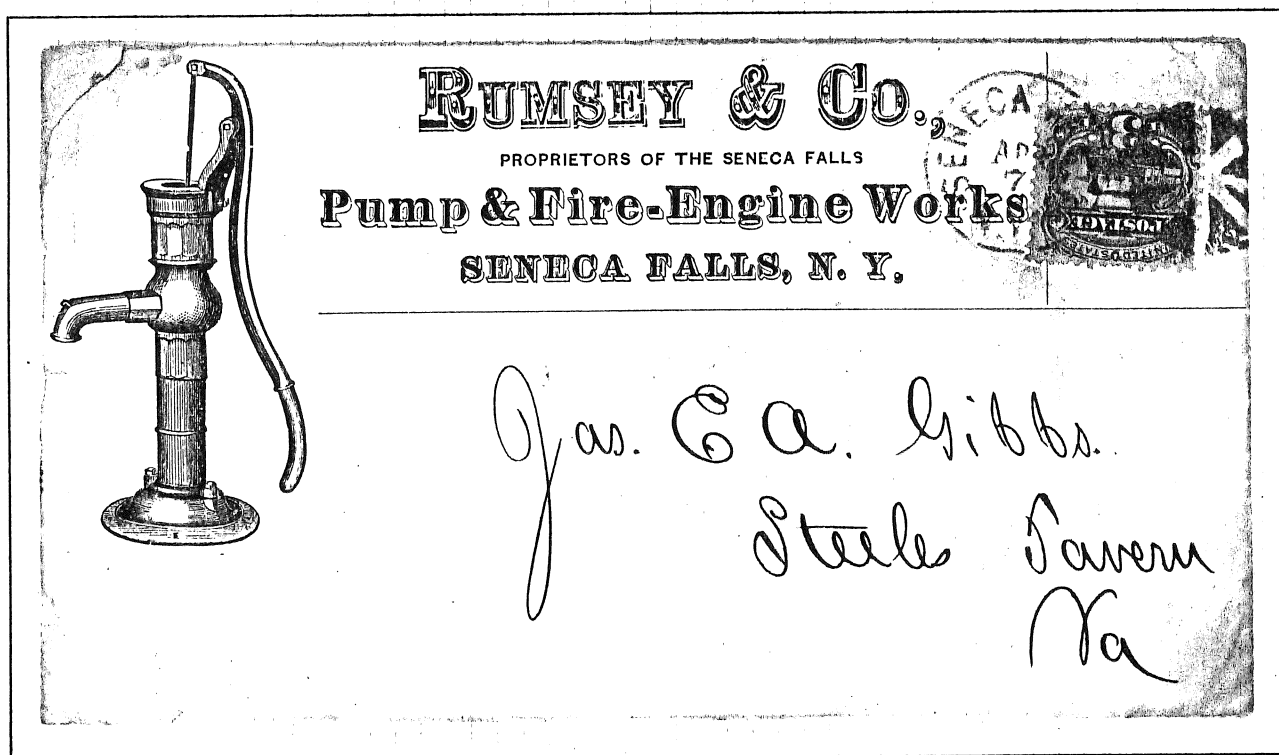 RUMSEY & CO.,
PROPRIETORS OF THE SENECA FALLS
Pump & Fire-Engine Works
SENECA FALLS, N. Y.
SENECA
AP
7
3
POSTAGE
UNITED STATES
Jas. E A. Gibbs.
Steeles Tavern
Va